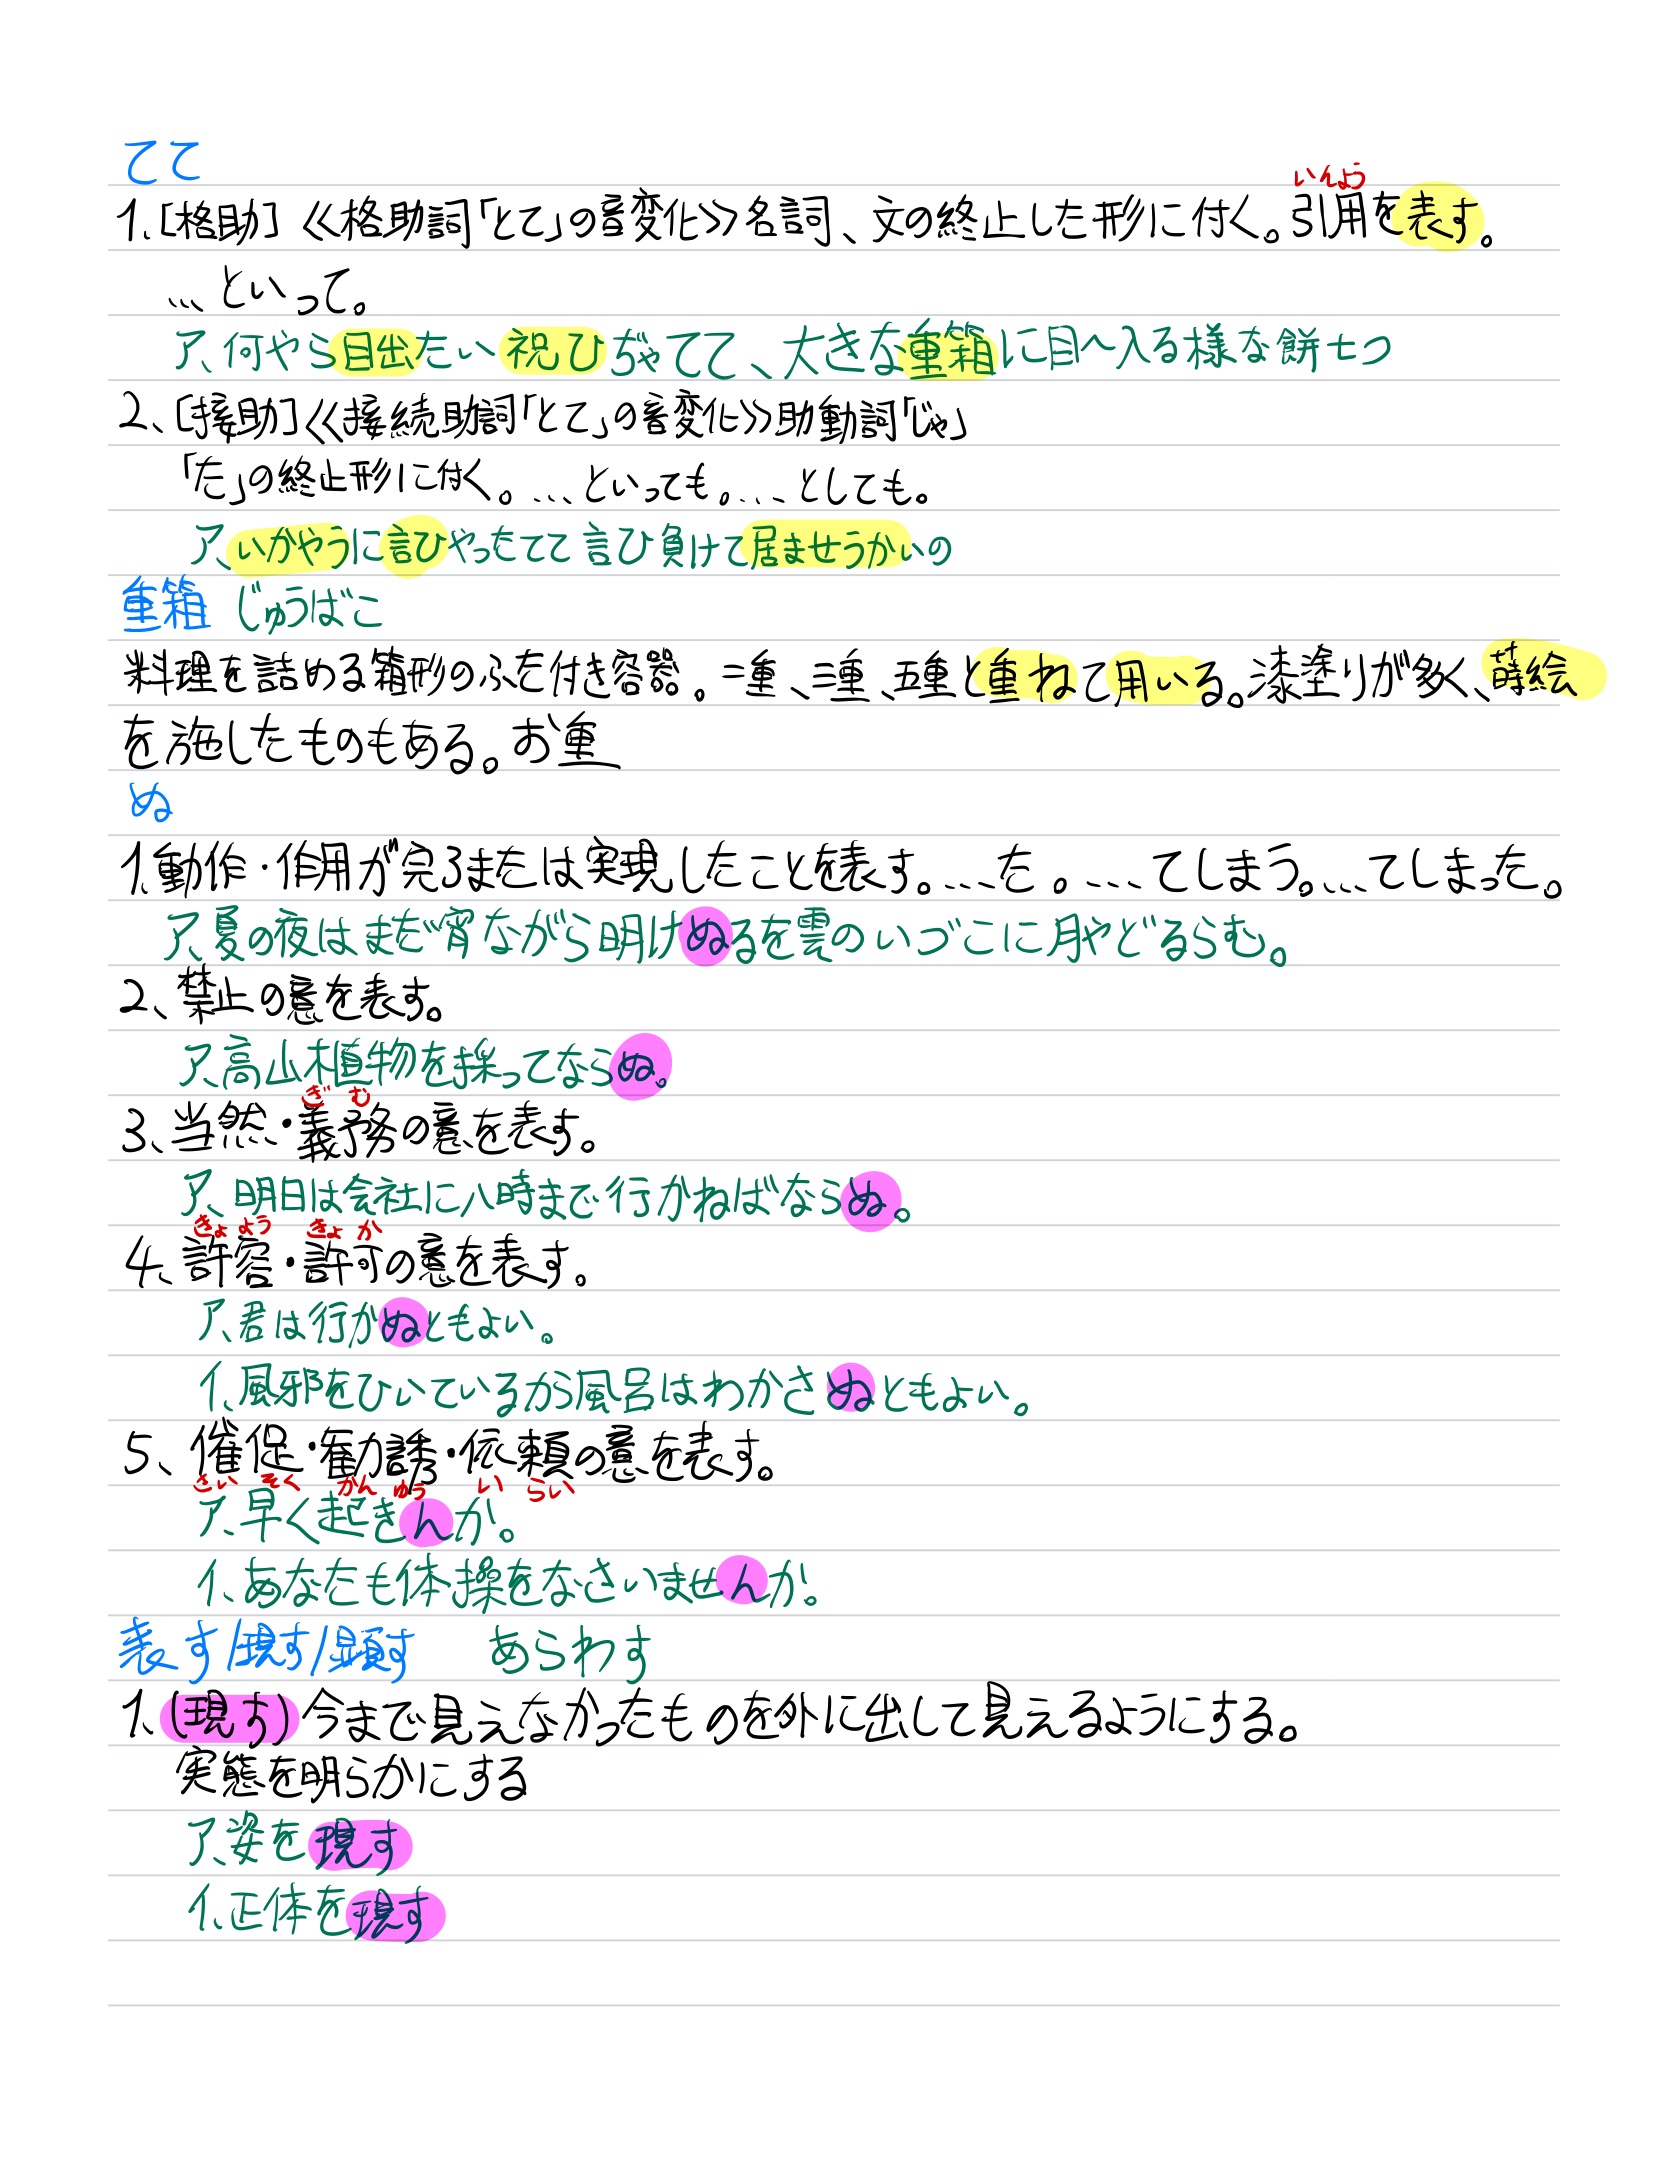 てて
いんよう
1、[格助]≪格助詞「とて」の音変化≫名詞、文の終止した形に付く。引用を表す。
…といって。
ア、何やら目出たい祝ひぢゃてて、大きな重箱に目へ入る様な餅七つ
2、[接助]≪接続助詞「とて」の音変化≫助動詞「じゃ」
「た」の終止形に付く。…といっても。…としても。
ア、いかやうに言ひやったてて言ひ負けて居ませうかいの
重箱 じゅうばこ
料理を詰める箱形のふた付き容器。二重、三重、五重と重ねて用いる。漆塗りが多く、蒔絵
を施したものもある。お重
ぬ
1、動作・作用が完るまたは実現したことを表す。…た。…てしまう。…てしまった。
ア、夏の夜はまだ宵ながら明けぬるを雲のいづこに月やどるらむ。
2、禁止の意を表す。
ア、高山植物を採ってならぬ。
ぎむ
3、当然・義務の意を表す。
ア、明日は会社に八時まで行かねばならぬ。
きょよう きょか
4、許容・許可の意を表す。
ア、君は行かぬともよい。
イ、風邪をひいているから風呂はわかさぬともよい。
5、催促・勧誘・依頼の意を表す。
さいそく かんゆう いらい
ア、早く起きんか。
イ、あなたも体操をなさいませんか。
表す/現す/顕す あらわす
1、(現す)今まで見えなかったものを外に出して見えるようにする。
実態を明らかにする
ア、姿を現す
イ、正体を現す